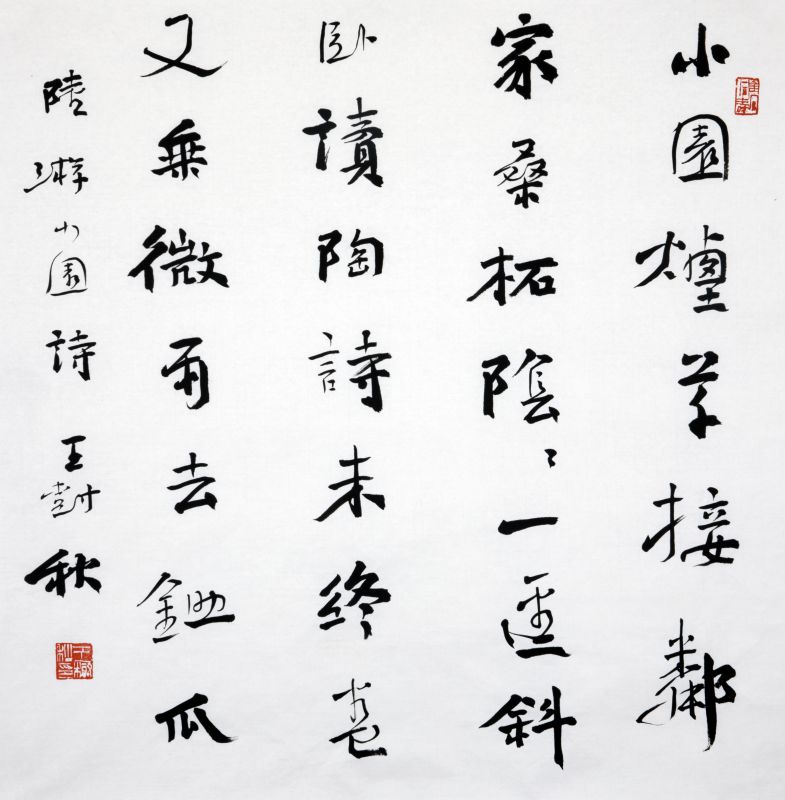 小園煙草接鄰
家桑柘陰〻一逕斜
臥讀陶詩未終卷
又乘微雨去鋤瓜
陸游小園詩 王樹秋